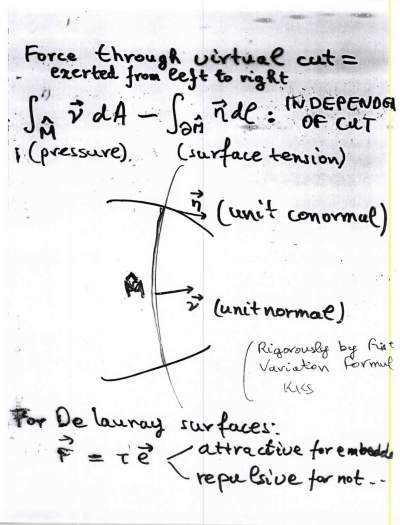 Force through virtual cut =
exerted from left to right
∫_M̂ ν⃗ dA − ∫_∂M̂ η⃗ dl : INDEPENDE
OF CUT
(pressure). (surface tension)
η⃗ (unit conormal)
M̂
ν⃗ (unit normal)
Rigorously by First
Variation Formul
KKS
For De launay surfaces:
F⃗ = τ e⃗ attractive for embedde
repulsive for not ..